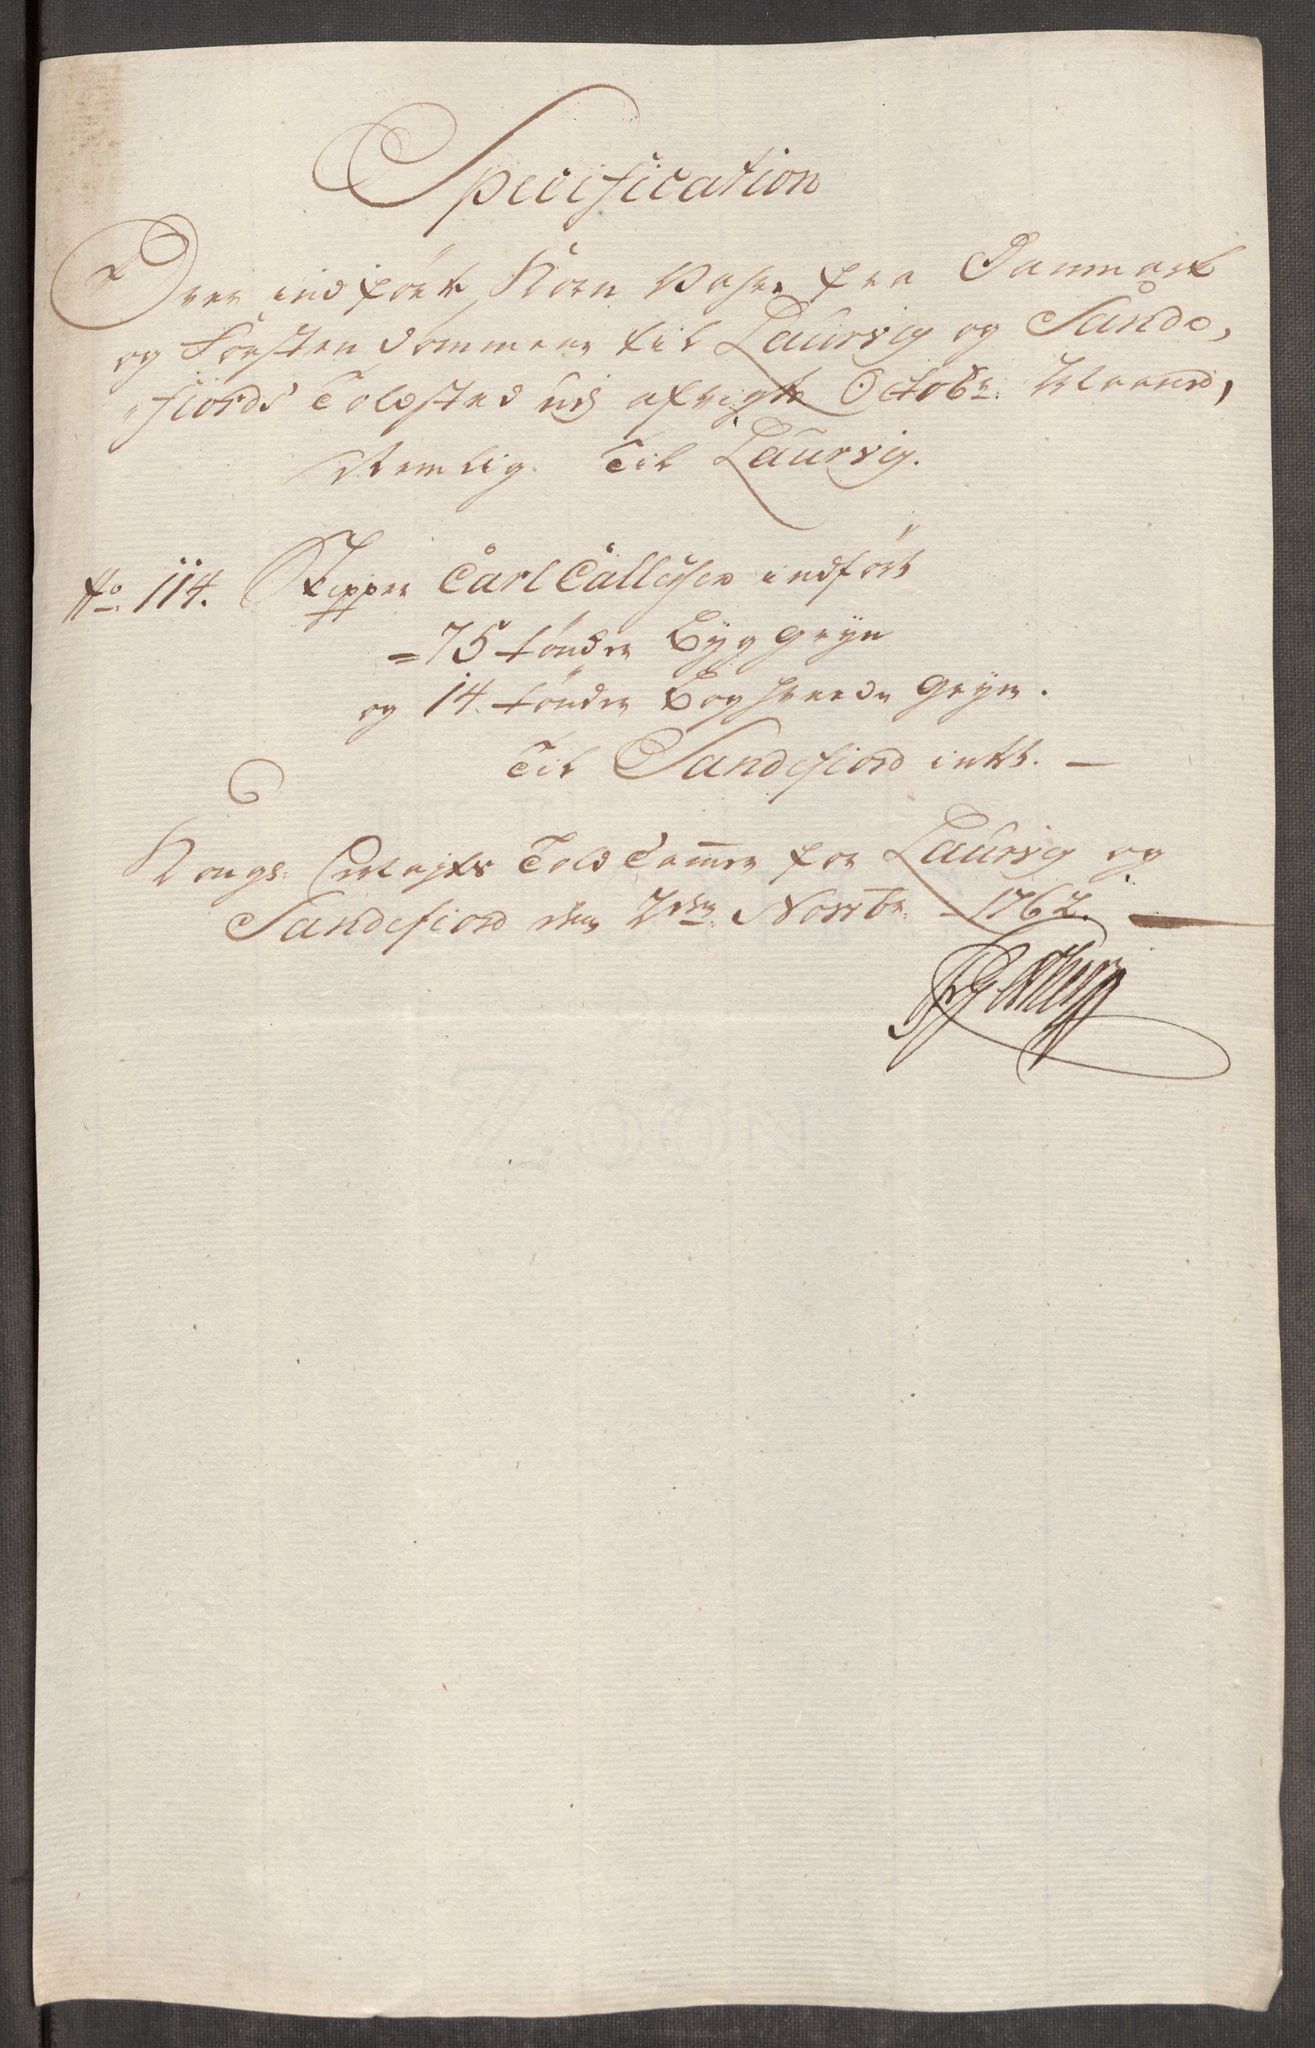 Specification
Over indført Korn Vahre fra Danmark
og Førstendommene til Laurvig og Sande-
fiords Toldsted udj afvigte Octobr: Maaned,
Nemlig. Til Laurvig.
No. 114. Skipper Carl Callisen indført
= 75 tønder Byggryn
og 14 tønder Boghvede Gryn.
Til Sandefiord intet. —
Kongs: Told Cammer for Laurvig og
Sandefiord den 2den Novbr. 1762.